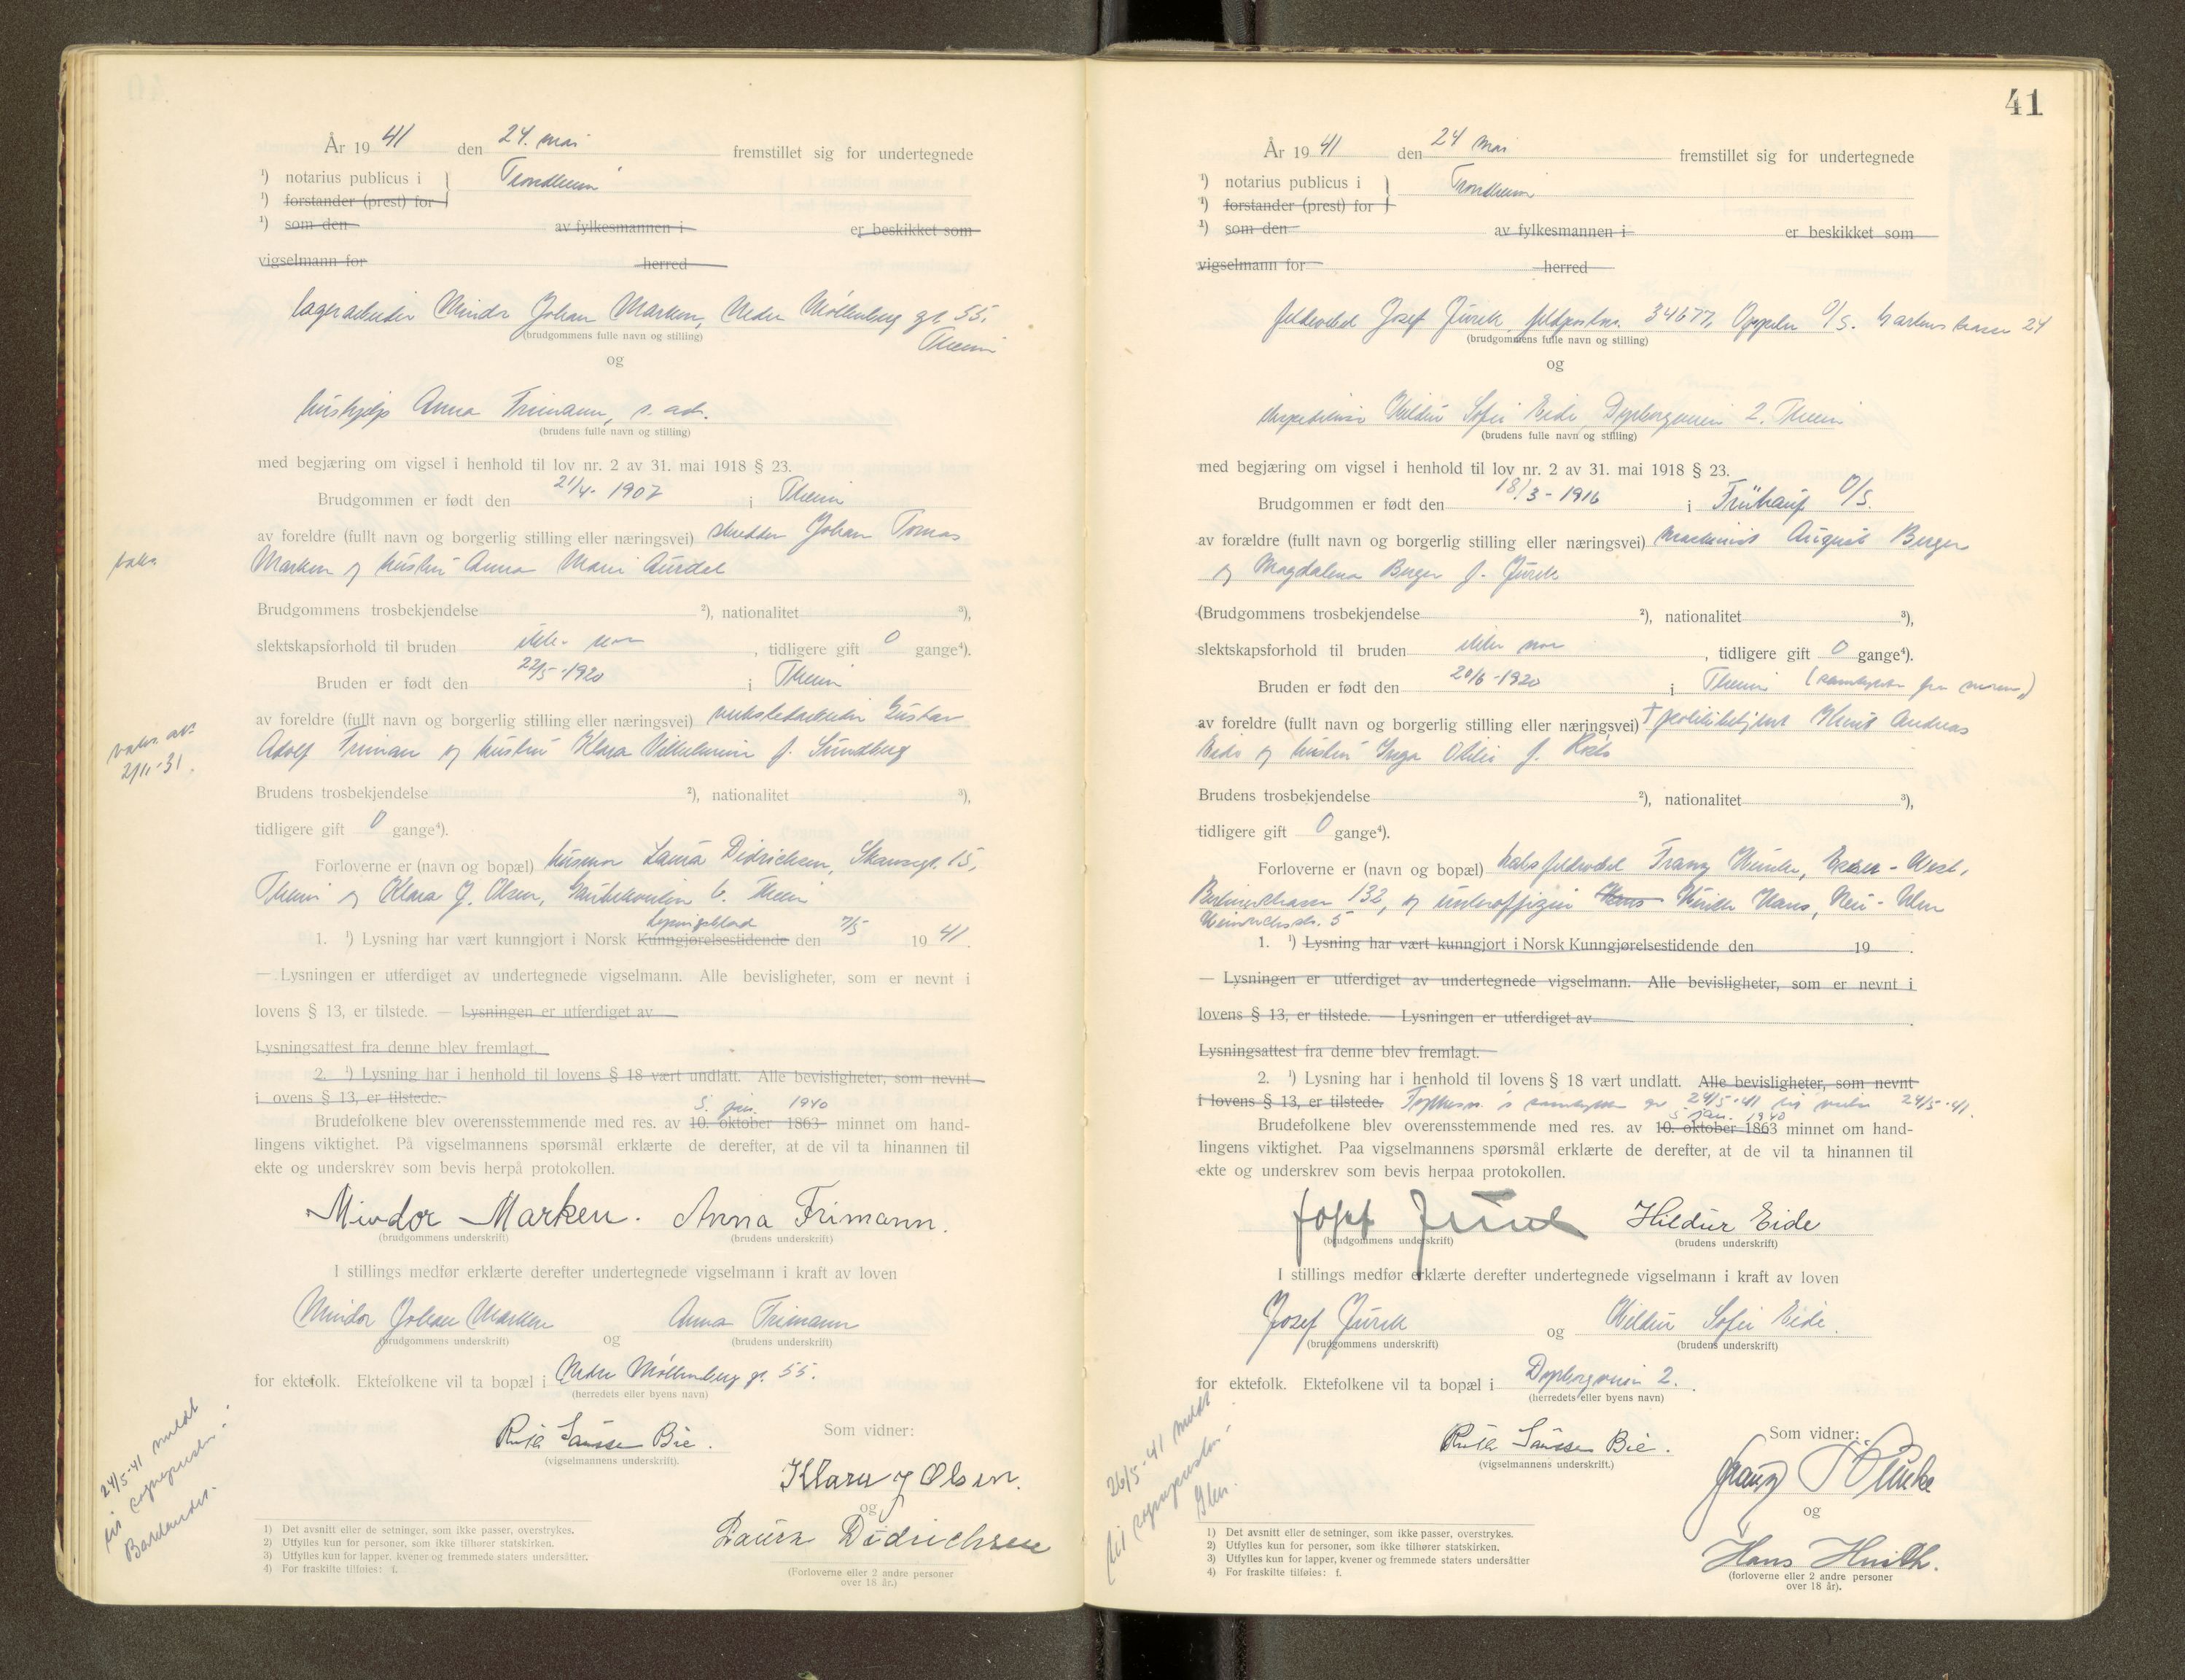 År 19 41 den 24. mai fremstillet sig for undertegnede
¹) notarius publicus i } Trondheim
¹) forstander (prest) for
¹) som den av fylkesmannen i er beskikket som
vigselmann for herred
lagerarbeider Mindor Johan Marken, Nedre Möllenberg gt. 55,
Theim
(brudgommens fulle navn og stilling)
og
hushjelp Anna Frimann, s. adr.
(brudens fulle navn og stilling)
med begjæring om vigsel i henhold til lov nr. 2 av 31. mai 1918 § 23.
Brudgommen er født den 21/4- 1907 i Theim
av foreldre (fullt navn og borgerlig stilling eller næringsvei) skredder Johan Tomas
Marken og hustru Anna Marie Aurdal
Brudgommens trosbekjendelse ²), nationalitet ³),
slektskapsforhold til bruden ikke nær, tidligere gift 0 gange⁴).
Bruden er født den 22/5-1920 i Theim
av foreldre (fullt navn og borgerlig stilling eller næringsvei) verkstedarbeider Gustav
Adolf Frimann og hustru Klara Vilhelmine f. Sundberg
vaks. att.
2/11-31.
Brudens trosbekjendelse ²), nationalitet ³),
tidligere gift 0 gange⁴).
Forloverne er (navn og bopæl) husmor Laura Didrichsen, Skansegt. 15,
Theim og Klara J. Olsen, 6. Theim
lysningsblad
1. ¹) Lysning har vært kunngjort i Norsk Kunngjørelsestidende den 7/5 19 41.
— Lysningen er utferdiget av undertegnede vigselmann. Alle bevisligheter, som er nevnt i
lovens § 13, er tilstede. — Lysningen er utferdiget av
Lysningsattest fra denne blev fremlagt.
2. ¹) Lysning har i henhold til lovens § 18 vært undlatt. Alle bevisligheter, som nevnt
i ovens § 13, er tilstede.
5. jan. 1940
Brudefolkene blev overensstemmende med res. av 10. oktober 1863 minnet om hand-
lingens viktighet. På vigselmannens spørsmål erklærte de derefter, at de vil ta hinannen til
ekte og underskrev som bevis herpå protokollen.
Mindor Marken. Anna Frimann.
(brudgommens underskrift) (brudens underskrift)
I stillings medfør erklærte derefter undertegnede vigselmann i kraft av loven
Mindor Johan Marken og Anna Frimann
(brudgommens underskrift) (brudens underskrift)
for ektefolk. Ektefolkene vil ta bopæl i Nedre Möllenberg gt. 55.
(herredets eller byens navn)
Som vidner:
(vigselmannens underskrift).
Klara J Olsen.
og
Laura Didrichsen
(Forloverne eller 2 andre personer
over 18 år.)
24/5-41 meldt
til sogneprest
1) Det avsnitt eller de setninger, som ikke passer, overstrykes.
2) Utfylles kun for personer, som ikke tilhører statskirken.
3) Utfylles kun for lapper, kvener og fremmede staters undersåtter.
4) For fraskilte tilføies: f.
41
År 19 41 den 24 mai fremstillet sig for undertegnede
¹) notarius publicus i } Trondheim
¹) forstander (prest) for
¹) som den av fylkesmannen i er beskikket som
vigselmann for herred
feldwebel Josef Jurek, feldpostnr. 34677, Oppeln O/S. Gartenstrasse 24
(brudgommens fulle navn og stilling)
og
ekspeditrise Hildur Sofie Eide, Dyrborgveien 2. Theim
(brudens fulle navn og stilling)
med begjæring om vigsel i henhold til lov nr. 2 av 31. mai 1918 § 23.
Brudgommen er født den 18/3 - 1916 i O/S.
av forældre (fullt navn og borgerlig stilling eller næringsvei) maskinist August Berger
og Magdalena Berger f. Jurek
(Brudgommens trosbekjendelse ²), nationalitet ³),
slektskapsforhold til bruden ikke nær, tidligere gift 0 gange⁴).
Bruden er født den 20/6 -1920 i Theim (samtykke fra moren)
av foreldre (fullt navn og borgerlig stilling eller næringsvei) † politibetjent Andreas
Eide og hustru Inga Otilie f.
Brudens trosbekjendelse ²), nationalitet ³),
tidligere gift 0 gange⁴).
Forloverne er (navn og bopæl) feldwebel Franz Essen - West,
Berlinerstrasse 132, og unteroffizier Hans, Neu - Ulm
5
1. ¹) Lysning har vært kunngjort i Norsk Kunngjørelsestidende den 19 .
— Lysningen er utferdiget av undertegnede vigselmann. Alle bevisligheter, som er nevnt i
lovens § 13, er tilstede. — Lysningen er utferdiget av
Lysningsattest fra denne blev fremlagt.
2. ¹) Lysning har i henhold til lovens § 18 vært undlatt. Alle bevisligheter, som nevnt
i lovens § 13, er tilstede. Fylkesm.'s samtykke av 24/5-41 24/5-41.
5 jan. 1940
Brudefolkene blev overensstemmende med res. av 10. oktober 1863 minnet om hand-
lingens viktighet. Paa vigselmannens spørsmål erklærte de derefter, at de vil ta hinannen til
ekte og underskrev som bevis herpaa protokollen.
Josef Jurek Hildur Eide
(brudgommens underskrift) (brudens underskrift)
I stillings medfør erklærte derefter undertegnede vigselmann i kraft av loven
Josef Jurek og Hildur Sofie Eide.
(brudgommens underskrift) (brudens underskrift)
for ektefolk. Ektefolkene vil ta bopæl i Dyrborgveien 2.
(herredets eller byens navn)
Som vidner:
(vigselmannens underskrift.)
Franz
og
Hans
(forloverne eller 2 andre personer
over 18 år).
26/5-41 meldt
til sogneprest
1) Det avsnitt eller de setninger, som ikke passer, overstrykes.
2) Utfylles kun for personer, som ikke tilhører statskirken.
3) Utfylles kun for lapper, kvener og fremmede staters undersåtter
4) For fraskilte tilføies: f.